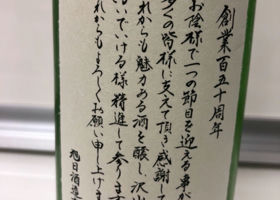 創業百五十周年
お陰様で一つの節目を迎える事が
多くの皆様に支えて頂き感謝して
れからも魅力ある酒を醸し、沢山
いでいける様精進して参ります
れからもよろしくお願い申し上げま
旭日酒造